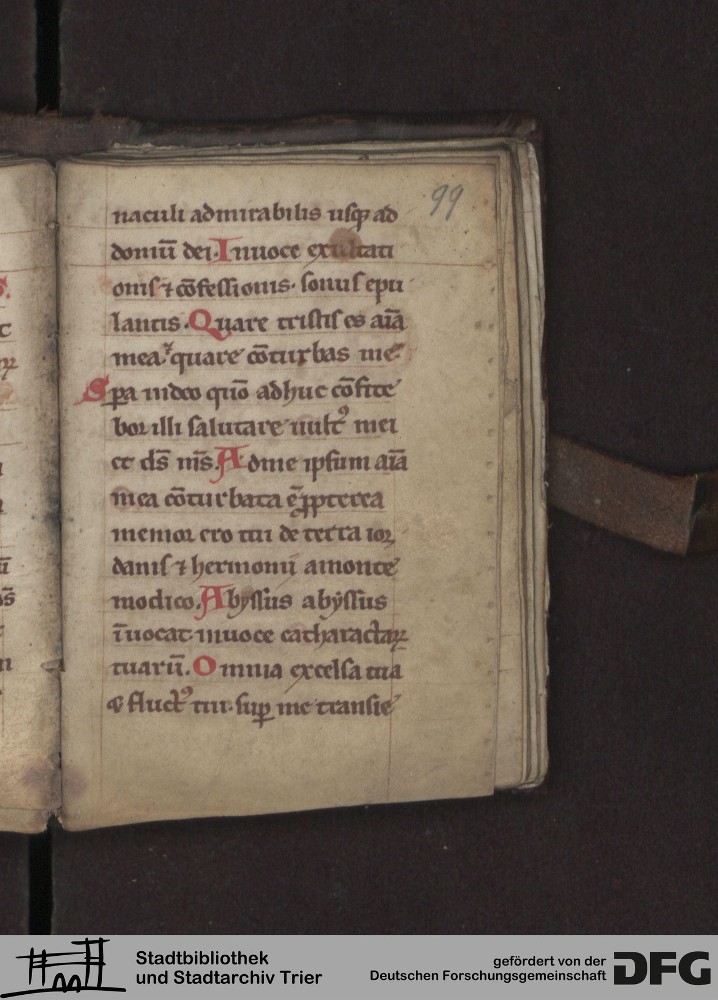 99
naculi admirabilis usq; ad
domū dei. In uoce exultati
onis ⁊ cōfessionis. sonus epu
lantis. Quare tristis es aīa
mea. ⁊ quare cōturbas me.
Spa in deo quō adhuc cōfite
bor illi salutare uult᷒ mei
et ds̄ ms̄. Ad me ipsum aīa
mea cōturbata ē ꝓpterea
memor ero tui de terra ior
danis ⁊ hermonii a monte
modico. Abyssus abyssus
īuocat in uoce catharactaꝝ
tuarū. Omnia excelsa tua
⁊ fluct᷒ tui. sup me transie
Stadtbibliothek
und Stadtarchiv Trier
gefördert von der
Deutschen Forschungsgemeinschaft
DFG